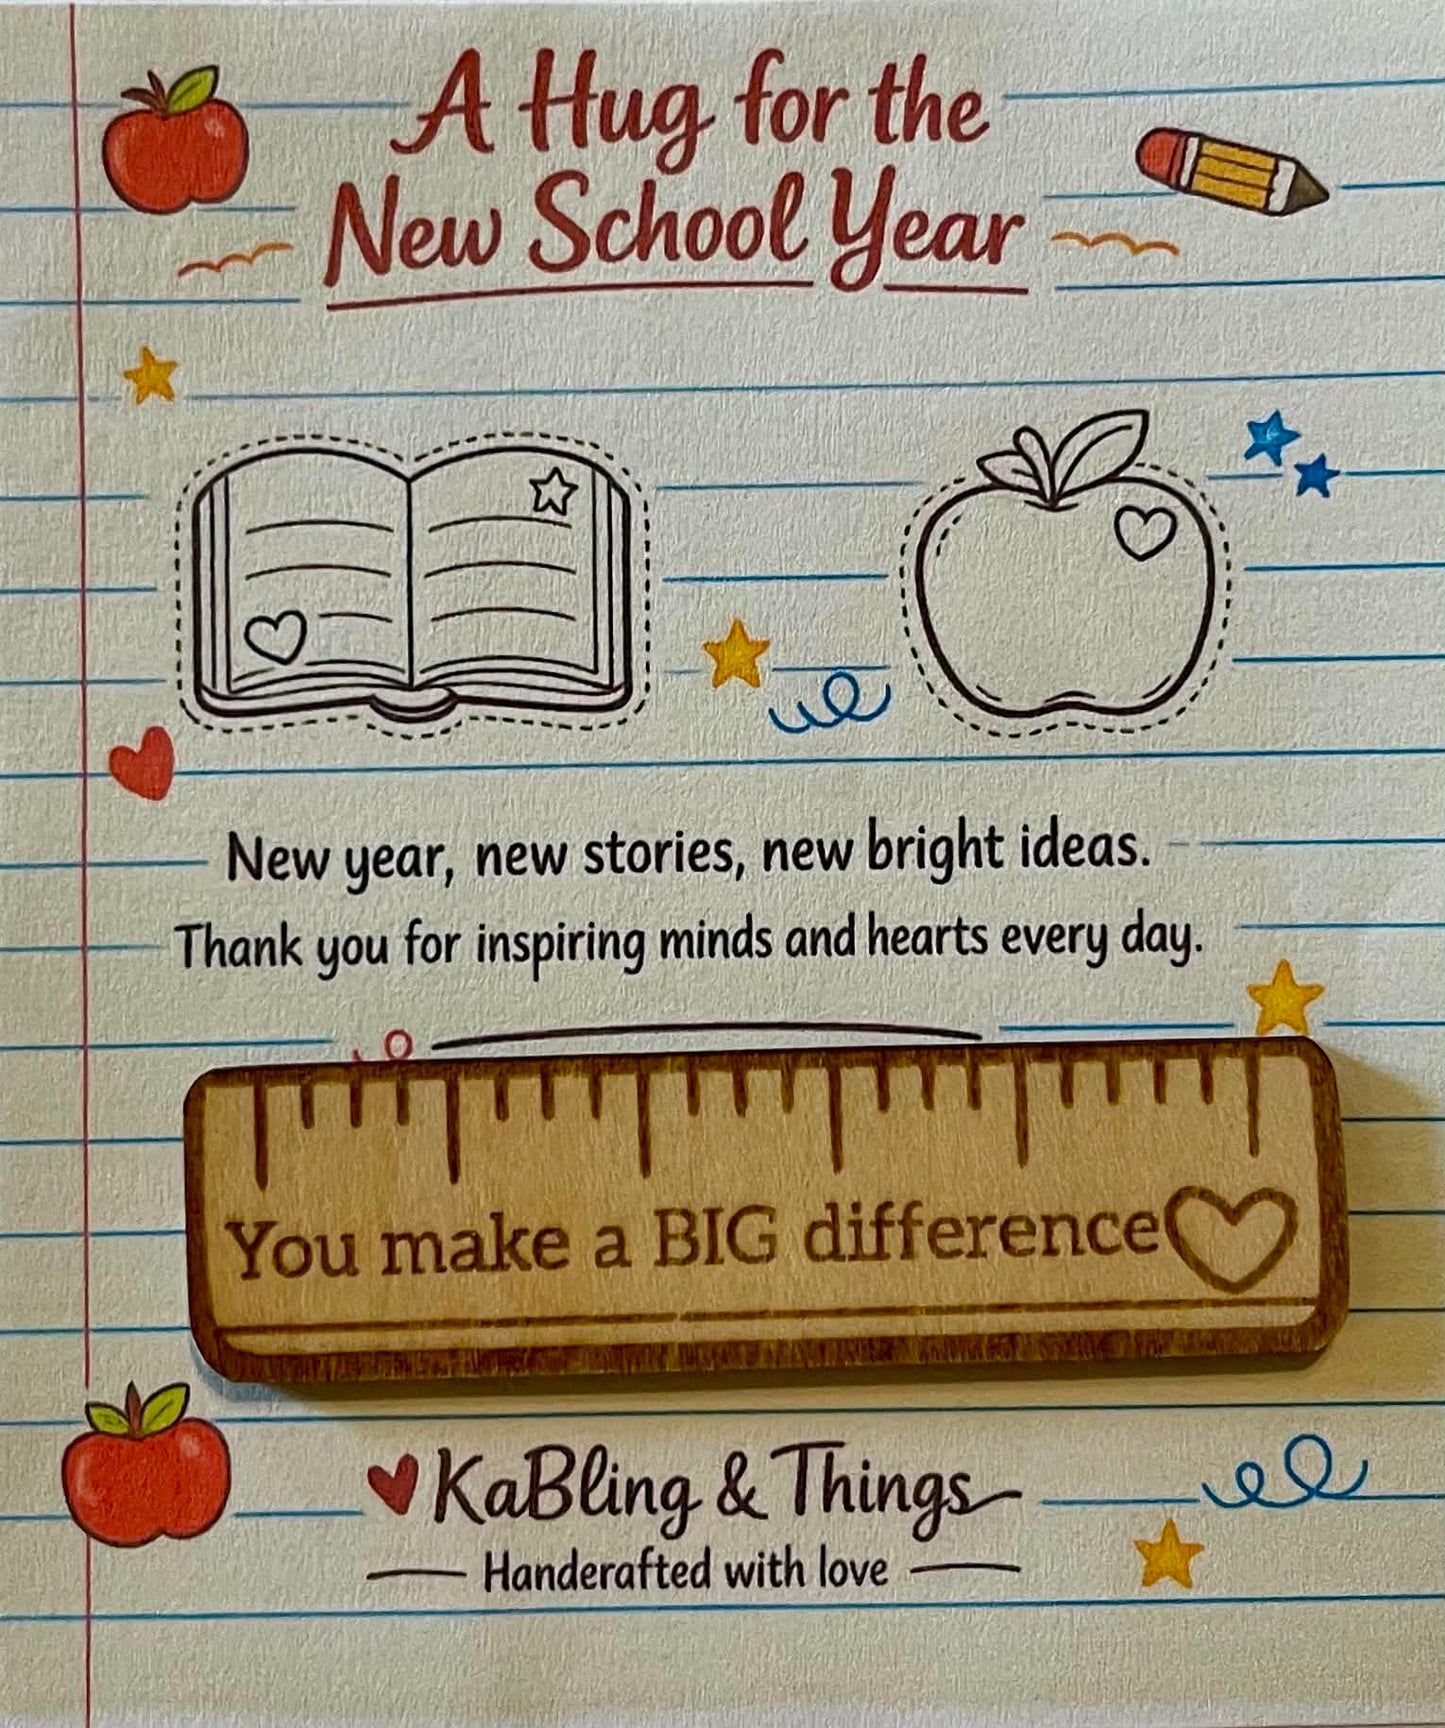 A Hug for the
New School Year
New year, new stories, new bright ideas.
Thank you for inspiring minds and hearts every day.
You make a BIG difference
KaBling & Things
Handcrafted with love